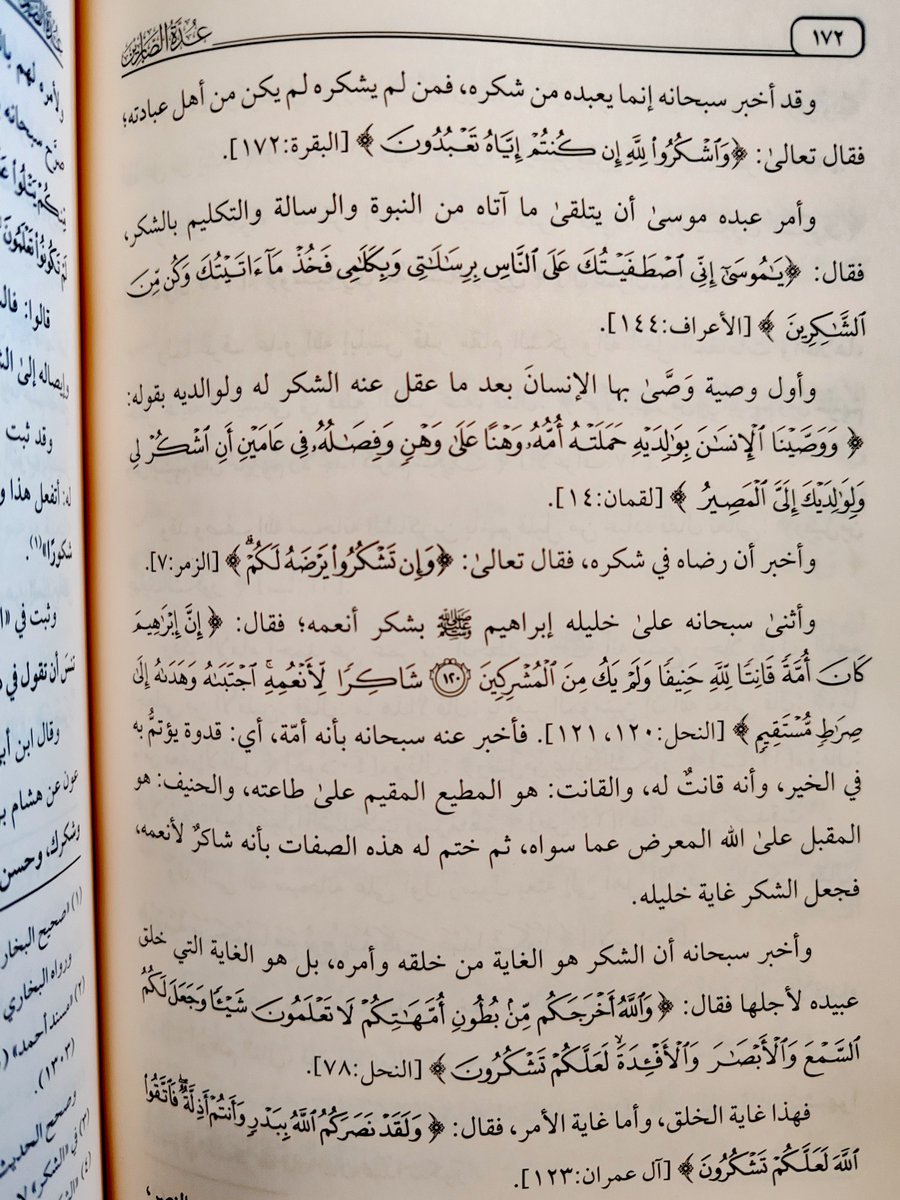 ١٧٢
عُدَّةُ الصَّابِرِينَ
وقد أخبر سبحانه إنما يعبده من شكره، فمن لم يشكره لم يكن من أهل عبادته؛
فقال تعالىٰ: ﴿وَٱشۡكُرُواْ لِلَّهِ إِن كُنتُمۡ إِيَّاهُ تَعۡبُدُونَ﴾ [البقرة:١٧٢].
وأمر عبده موسىٰ أن يتلقىٰ ما آتاه من النبوة والرسالة والتكليم بالشكر،
فقال: ﴿يَٰمُوسَىٰٓ إِنِّي ٱصۡطَفَيۡتُكَ عَلَى ٱلنَّاسِ بِرِسَٰلَٰتِي وَبِكَلَٰمِي فَخُذۡ مَآ ءَاتَيۡتُكَ وَكُن مِّنَ
ٱلشَّٰكِرِينَ﴾ [الأعراف:١٤٤].
وأول وصية وَصَّىٰ بها الإنسانَ بعد ما عقل عنه الشكر له ولوالديه بقوله:
﴿وَوَصَّيۡنَا ٱلۡإِنسَٰنَ بِوَٰلِدَيۡهِ حَمَلَتۡهُ أُمُّهُۥ وَهۡنًا عَلَىٰ وَهۡنٖ وَفِصَٰلُهُۥ فِي عَامَيۡنِ أَنِ ٱشۡكُرۡ لِي
وَلِوَٰلِدَيۡكَ إِلَيَّ ٱلۡمَصِيرُ﴾ [لقمان:١٤].
وأخبر أن رضاه في شكره، فقال تعالىٰ: ﴿وَإِن تَشۡكُرُواْ يَرۡضَهُ لَكُمۡۗ﴾ [الزمر:٧].
وأثنىٰ سبحانه علىٰ خليله إبراهيم ﷺ بشكر أنعمه؛ فقال: ﴿إِنَّ إِبۡرَٰهِيمَ
كَانَ أُمَّةٗ قَانِتٗا لِّلَّهِ حَنِيفٗا وَلَمۡ يَكُ مِنَ ٱلۡمُشۡرِكِينَ ١٢٠ شَاكِرٗا لِّأَنۡعُمِهِۚ ٱجۡتَبَىٰهُ وَهَدَىٰهُ إِلَىٰ
صِرَٰطٖ مُّسۡتَقِيمٖ﴾ [النحل:١٢٠، ١٢١]. فأخبر عنه سبحانه بأنه أمّة، أي: قدوة يؤتمُّ به
في الخير، وأنه قانتٌ له، والقانت: هو المطيع المقيم علىٰ طاعته، والحنيف: هو
المقبل علىٰ الله المعرض عما سواه، ثم ختم له هذه الصفات بأنه شاكرٌ لأنعمه،
فجعل الشكر غاية خليله.
وأخبر سبحانه أن الشكر هو الغاية من خلقه وأمره، بل هو الغاية التي خلق
عبيده لأجلها فقال: ﴿وَٱللَّهُ أَخۡرَجَكُم مِّنۢ بُطُونِ أُمَّهَٰتِكُمۡ لَا تَعۡلَمُونَ شَيۡـٔٗا وَجَعَلَ لَكُمُ
ٱلسَّمۡعَ وَٱلۡأَبۡصَٰرَ وَٱلۡأَفۡـِٔدَةَ لَعَلَّكُمۡ تَشۡكُرُونَ﴾ [النحل:٧٨].
فهذا غاية الخلق، وأما غاية الأمر، فقال: ﴿وَلَقَدۡ نَصَرَكُمُ ٱللَّهُ بِبَدۡرٖ وَأَنتُمۡ أَذِلَّةٞۖ فَٱتَّقُواْ
ٱللَّهَ لَعَلَّكُمۡ تَشۡكُرُونَ﴾ [آل عمران:١٢٣].
ولأمره لهم
سبحانه
قالوا:
وإيصاله إلىٰ
وقد ثبت
له: أتفعل هذا
شكورًا»(١).
وثبت في
أن تقول في
وقال ابن أبي
عون عن هشام
وشكرك، وحسن
(١) «صحيح
ورواه البخاري
(٢) «مسند أحمد»
(١٣٠٣).
وصحح الحديث
(٣) في «الشكر»
(٤)